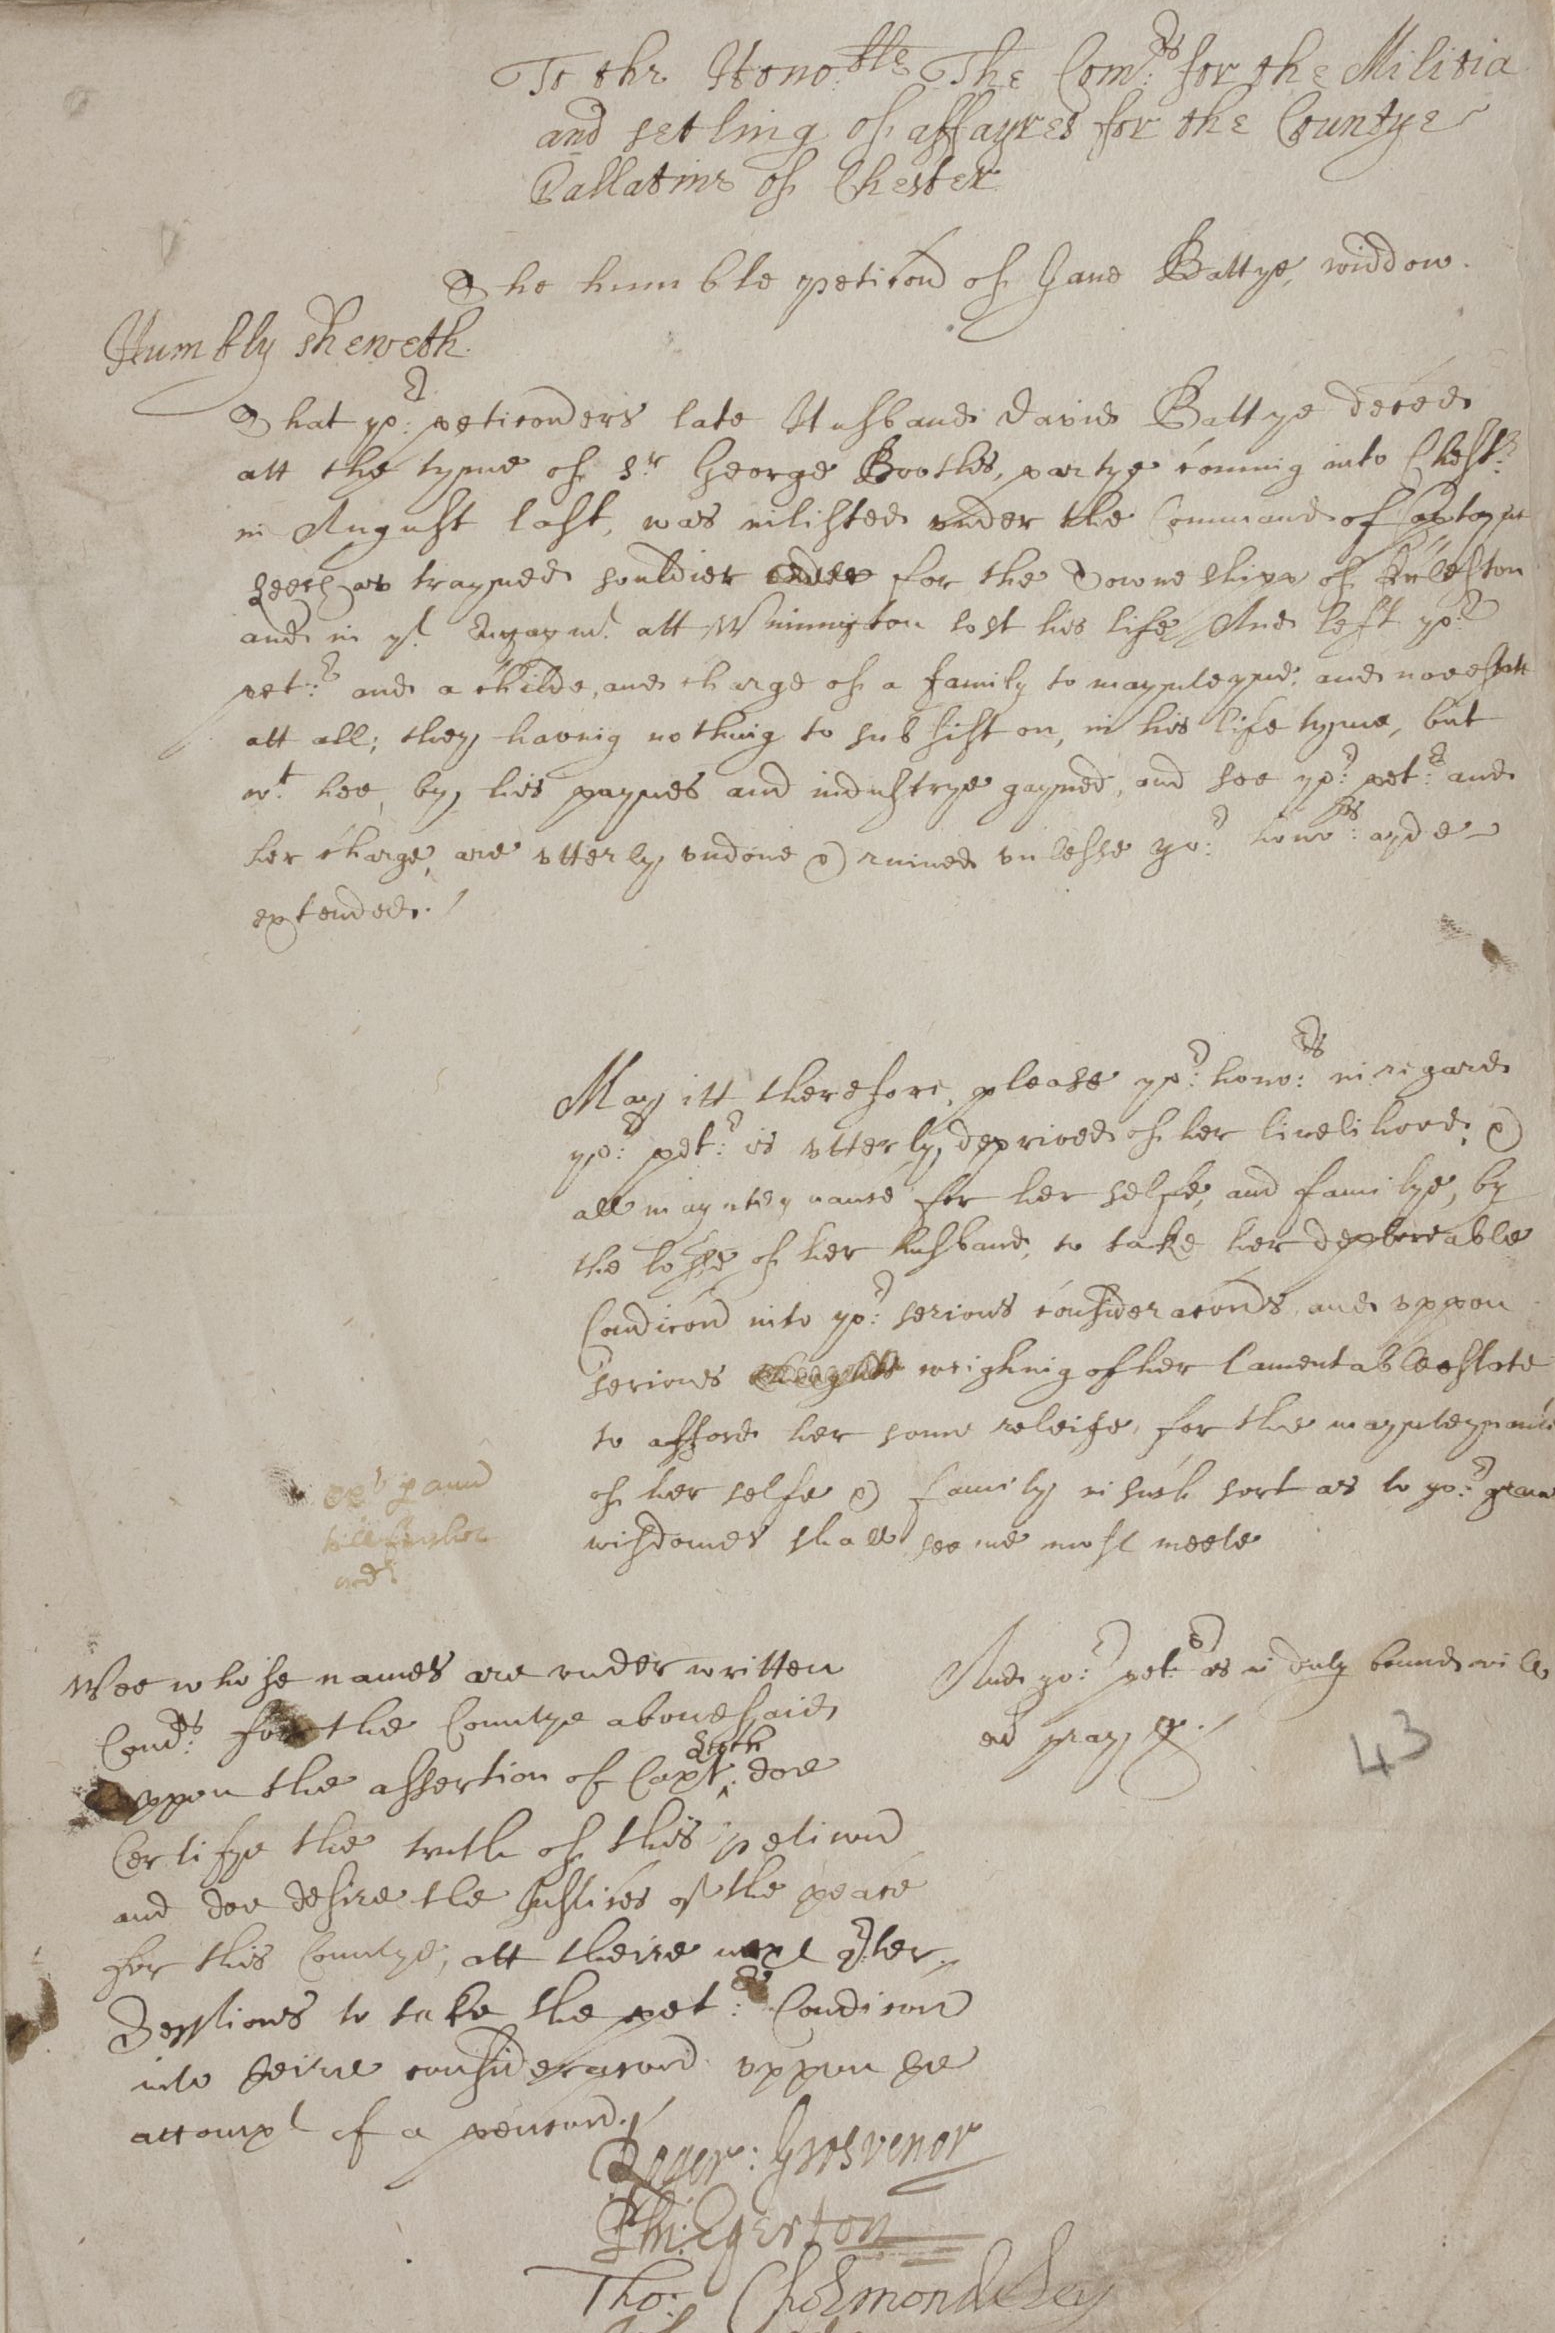 To the Hono:ble The Com:rs for the Militia
and setling of affayres for the Countye
Pallatine of Chester
The humble peticon of Jane Battye, widdow.
Humbly sheweth.
That yo:r peticoners late Husband David Battye deced
att the tyme of Sr George Boothes, partye coming into Chesh:r
in August last, was inlisted under the Command of Captayne
as trayned souldier for the Towneshipp of
and in ye Ingagmt. att Winnington lost his life, And left yo:r
pet:r and a childe, and charge of a family to maynteyne, and noe estate
att all; they haveing nothing to subsist on, in his life tyme, but
wt. hee, by his paynes and industrye gayned, and soe yo:r pet:r and
her charge, are utterly undone & ruined unlesse yo:r hono:rs ayde
extended./
May itt therefore, please yo:r hono:rs in regard
yo:r pet:r is utterly deprived of her livelihood, &
all maynteynance for her selfe, and familye, by
the losse of her husband, to take her deploreable
Condicon into yo:r serious consideracons and uppon
serious weighing of her lamentable estate
to afford her some releife, for the maynteynance
of her selfe & family in such sort as to yo:r grave
wisdomes shall seeme most meete
p ann
till further
ordr
And yo:r pet:r as in duty bound will
ev:r pray &c./
43
Wee whose names are under written
Com:rs for the Countye abovesaid
uppon the assertion of Capt: doe
Certifye the truth of this peticon
and doe desire the Justices of the peace
for this Countye, att theire next q:ter
Sessions to take the pet:rs Condicon
into theire consideracon uppon the
accompt of a pencon./
Roger: Grosvenor
Phi: Egerton
Tho: Cholmondeley